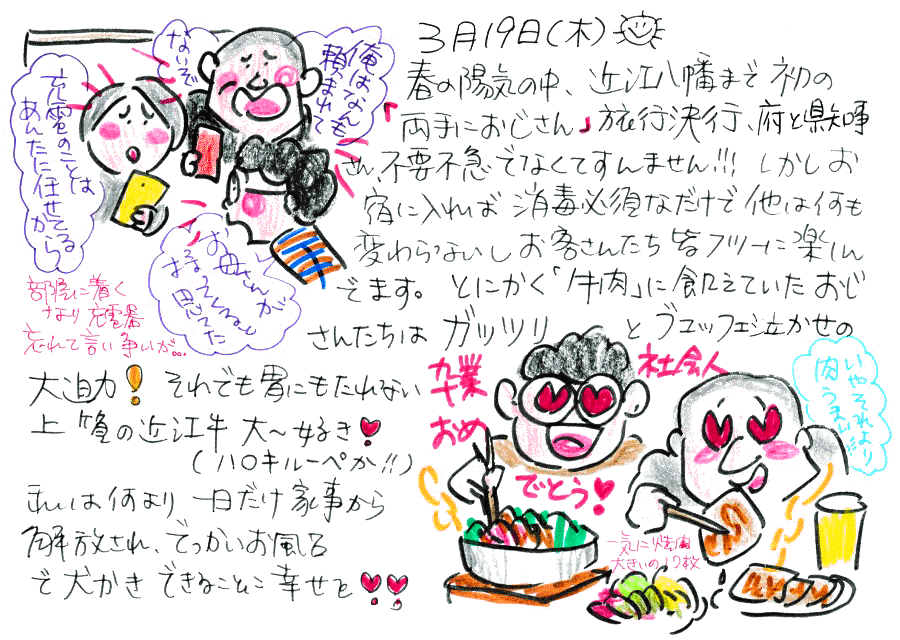 3月19日(木)
春の陽気の中、近江八幡まで初の
「両手におじさん」旅行決行、府と県知事
さん、不要不急でなくてすんません!!! しかしお
宿に入れば消毒必須なだけで他は何も
変わらないしお客さんたち皆フツーに楽しん
でます。とにかく「牛肉」に飢えていたおじ
さんたちはガッツリとブュッフェ泣かせの
大迫力!それでも胃にもたれない
上質の近江牛大〜好き
(ハ〇キルーペか!!)
私は何より一日だけ家事から
解放され、でっかいお風呂
で犬かきできることに幸せを
俺はなんも
頼まれて
ないぞ
充電のことは
あんたに任せてる
から
お母さんが
持ってくると
思てた
部屋に着く
なり充電器
忘れて言い争いが...
卒業
おめ
でとう
社会人
いやそれより
肉うまい!!!
一気に焼肉
大きいの17枚